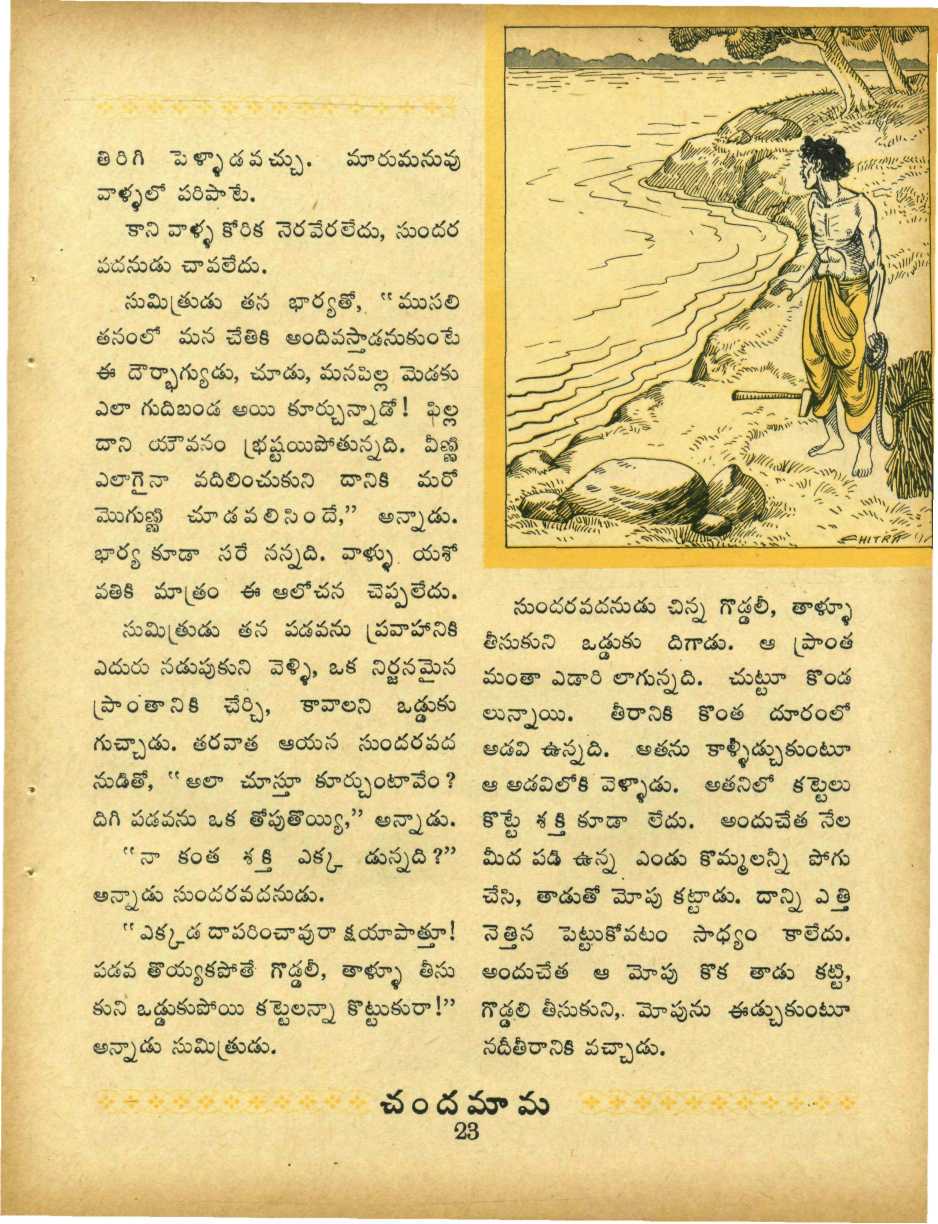 తిరిగి పెళ్ళాడవచ్చు. మారుమనువు
వాళ్ళలో పరిపాటే.
కాని వాళ్ళ కోరిక నెరవేరలేదు, సుందర
వదనుడు చావలేదు.
సుమిత్రుడు తన భార్యతో, “ముసలి
తనంలో మన చేతికి అందివస్తాడనుకుంటే
ఈ దౌర్భాగ్యుడు, చూడు, మనపిల్ల మెడకు
ఎలా గుదిబండ అయి కూర్చున్నాడో! పిల్ల
దాని యౌవనం భ్రష్టయిపోతున్నది. వీణ్ణి
ఎలాగైనా వదిలించుకుని దానికి మరో
మొగుణ్ణి చూడవలిసిందే,” అన్నాడు.
భార్య కూడా సరే నన్నది. వాళ్ళు యశో
వతికి మాత్రం ఈ ఆలోచన చెప్పలేదు.
సుమిత్రుడు తన పడవను ప్రవాహానికి
ఎదురు నడుపుకుని వెళ్ళి, ఒక నిర్జనమైన
ప్రాంతానికి చేర్చి, కావాలని ఒడ్డుకు
గుచ్చాడు. తరవాత ఆయన సుందరవద
నుడితో, “అలా చూస్తూ కూర్చుంటావేం?
దిగి పడవను ఒక తోపుతొయ్యి,” అన్నాడు.
“నా కంత శక్తి ఎక్క డున్నది?”
అన్నాడు సుందరవదనుడు.
“ఎక్కడ దాపరించావురా క్షయాపాత్తూ!
పడవ తొయ్యకపోతే గొడ్డలీ, తాళ్ళూ తీసు
కుని ఒడ్డుకుపోయి కట్టెలన్నా కొట్టుకురా!”
అన్నాడు సుమిత్రుడు.
CHITRA
సుందరవదనుడు చిన్న గొడ్డలీ, తాళ్ళూ
తీసుకుని ఒడ్డుకు దిగాడు. ఆ ప్రాంత
మంతా ఎడారి లాగున్నది. చుట్టూ కొండ
లున్నాయి. తీరానికి కొంత దూరంలో
అడవి ఉన్నది. అతను కాళ్ళీడ్చుకుంటూ
ఆ అడవిలోకి వెళ్ళాడు. అతనిలో కట్టెలు
కొట్టే శక్తి కూడా లేదు. అందుచేత నేల
మీద పడి ఉన్న ఎండు కొమ్మలన్నీ పోగు
చేసి, తాడుతో మోపు కట్టాడు. దాన్ని ఎత్తి
నెత్తిన పెట్టుకోవటం సాధ్యం కాలేదు.
అందుచేత ఆ మోపు కొక తాడు కట్టి,
గొడ్డలి తీసుకుని, మోపును ఈడ్చుకుంటూ
నదీతీరానికి వచ్చాడు.
చందమామ
23